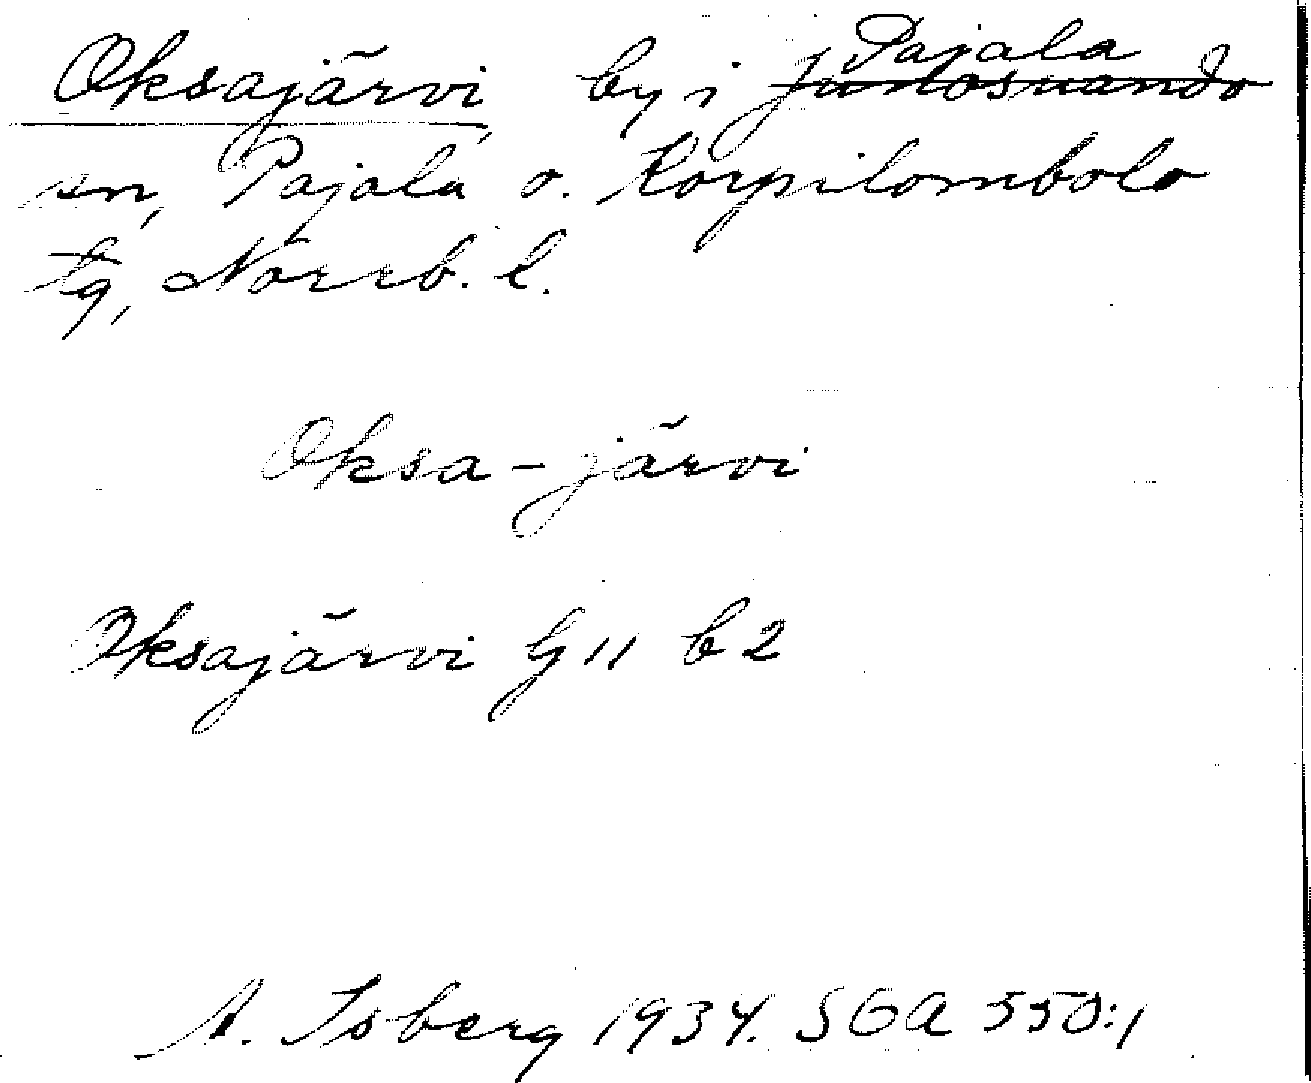 Oksajärvi, by i Pajala Junosuando
sn, Pajala o. Korpilombolo
tg, Norrb. l.
Oksa-järvi
Oksajärvi G 11 b 2
A. Isberg 1934. SOA 550:1